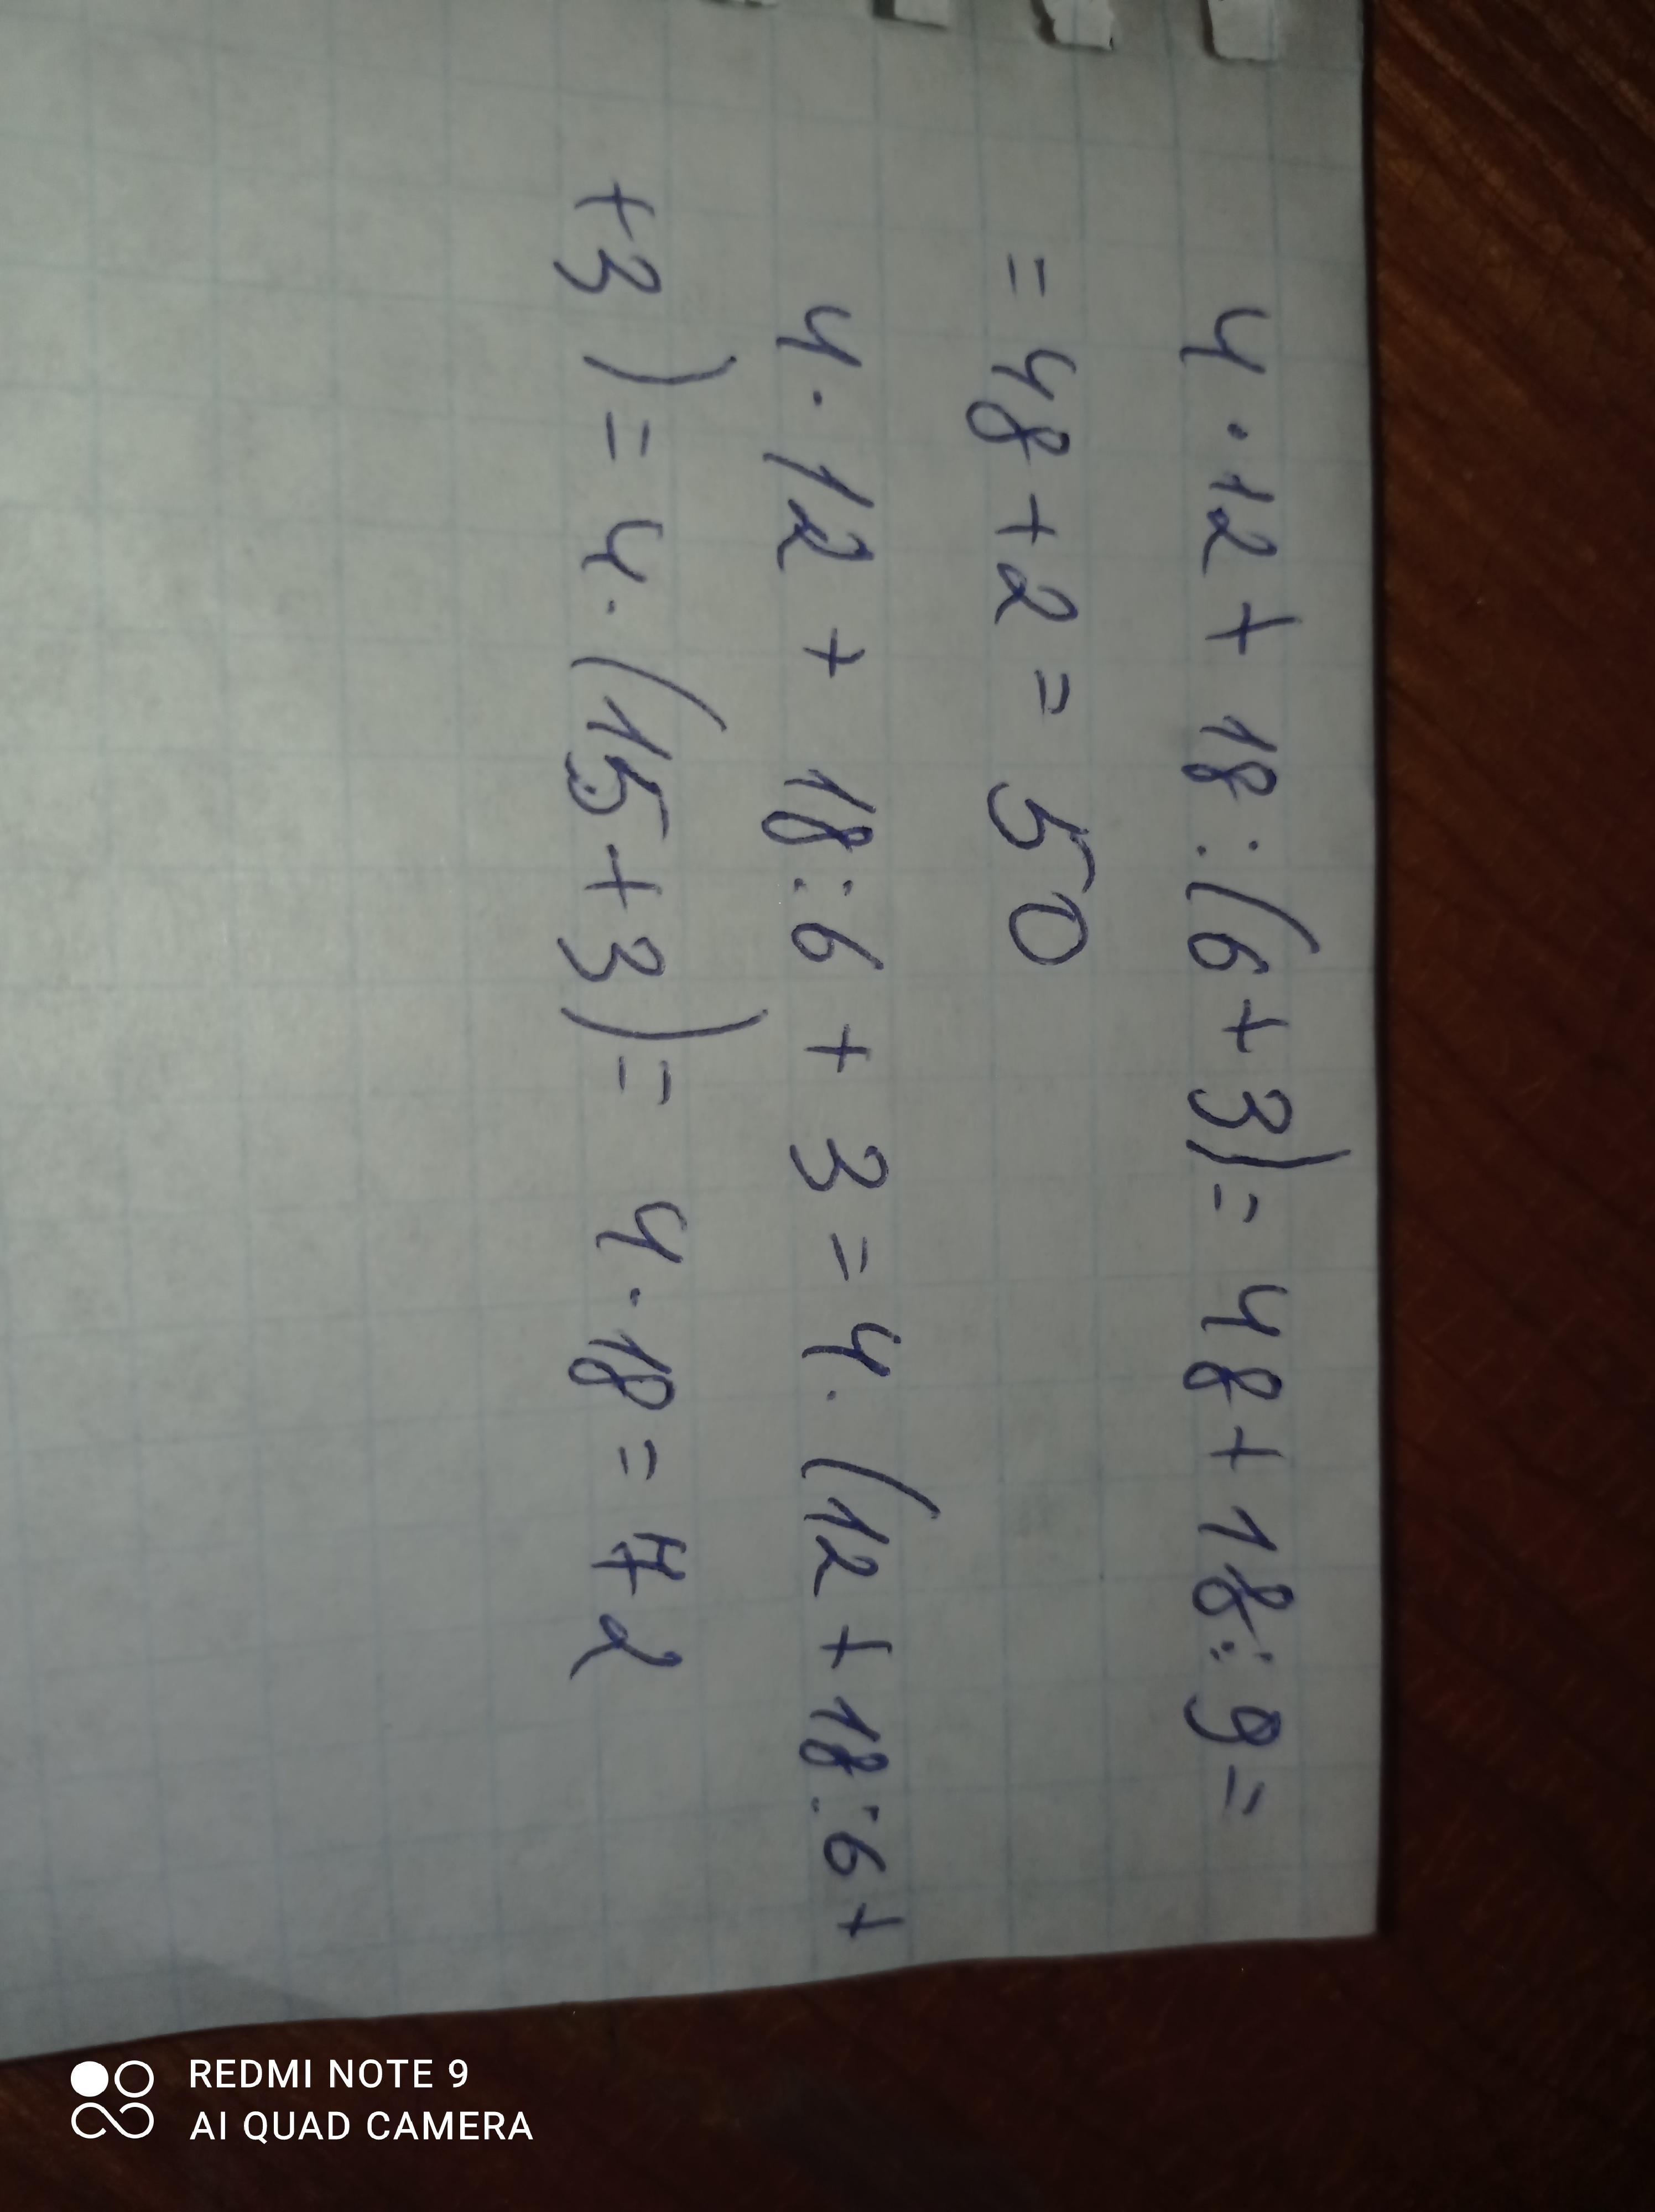 4 · 12 + 18 : (6 + 3) = 48 + 18 : 9 =
= 48 + 2 = 50
4 · 12 + 18 : 6 + 3 = 4 · (12 + 18 : 6 +
+ 3) = 4 · (15 + 3) = 4 · 18 = 72
REDMI NOTE 9
AI QUAD CAMERA